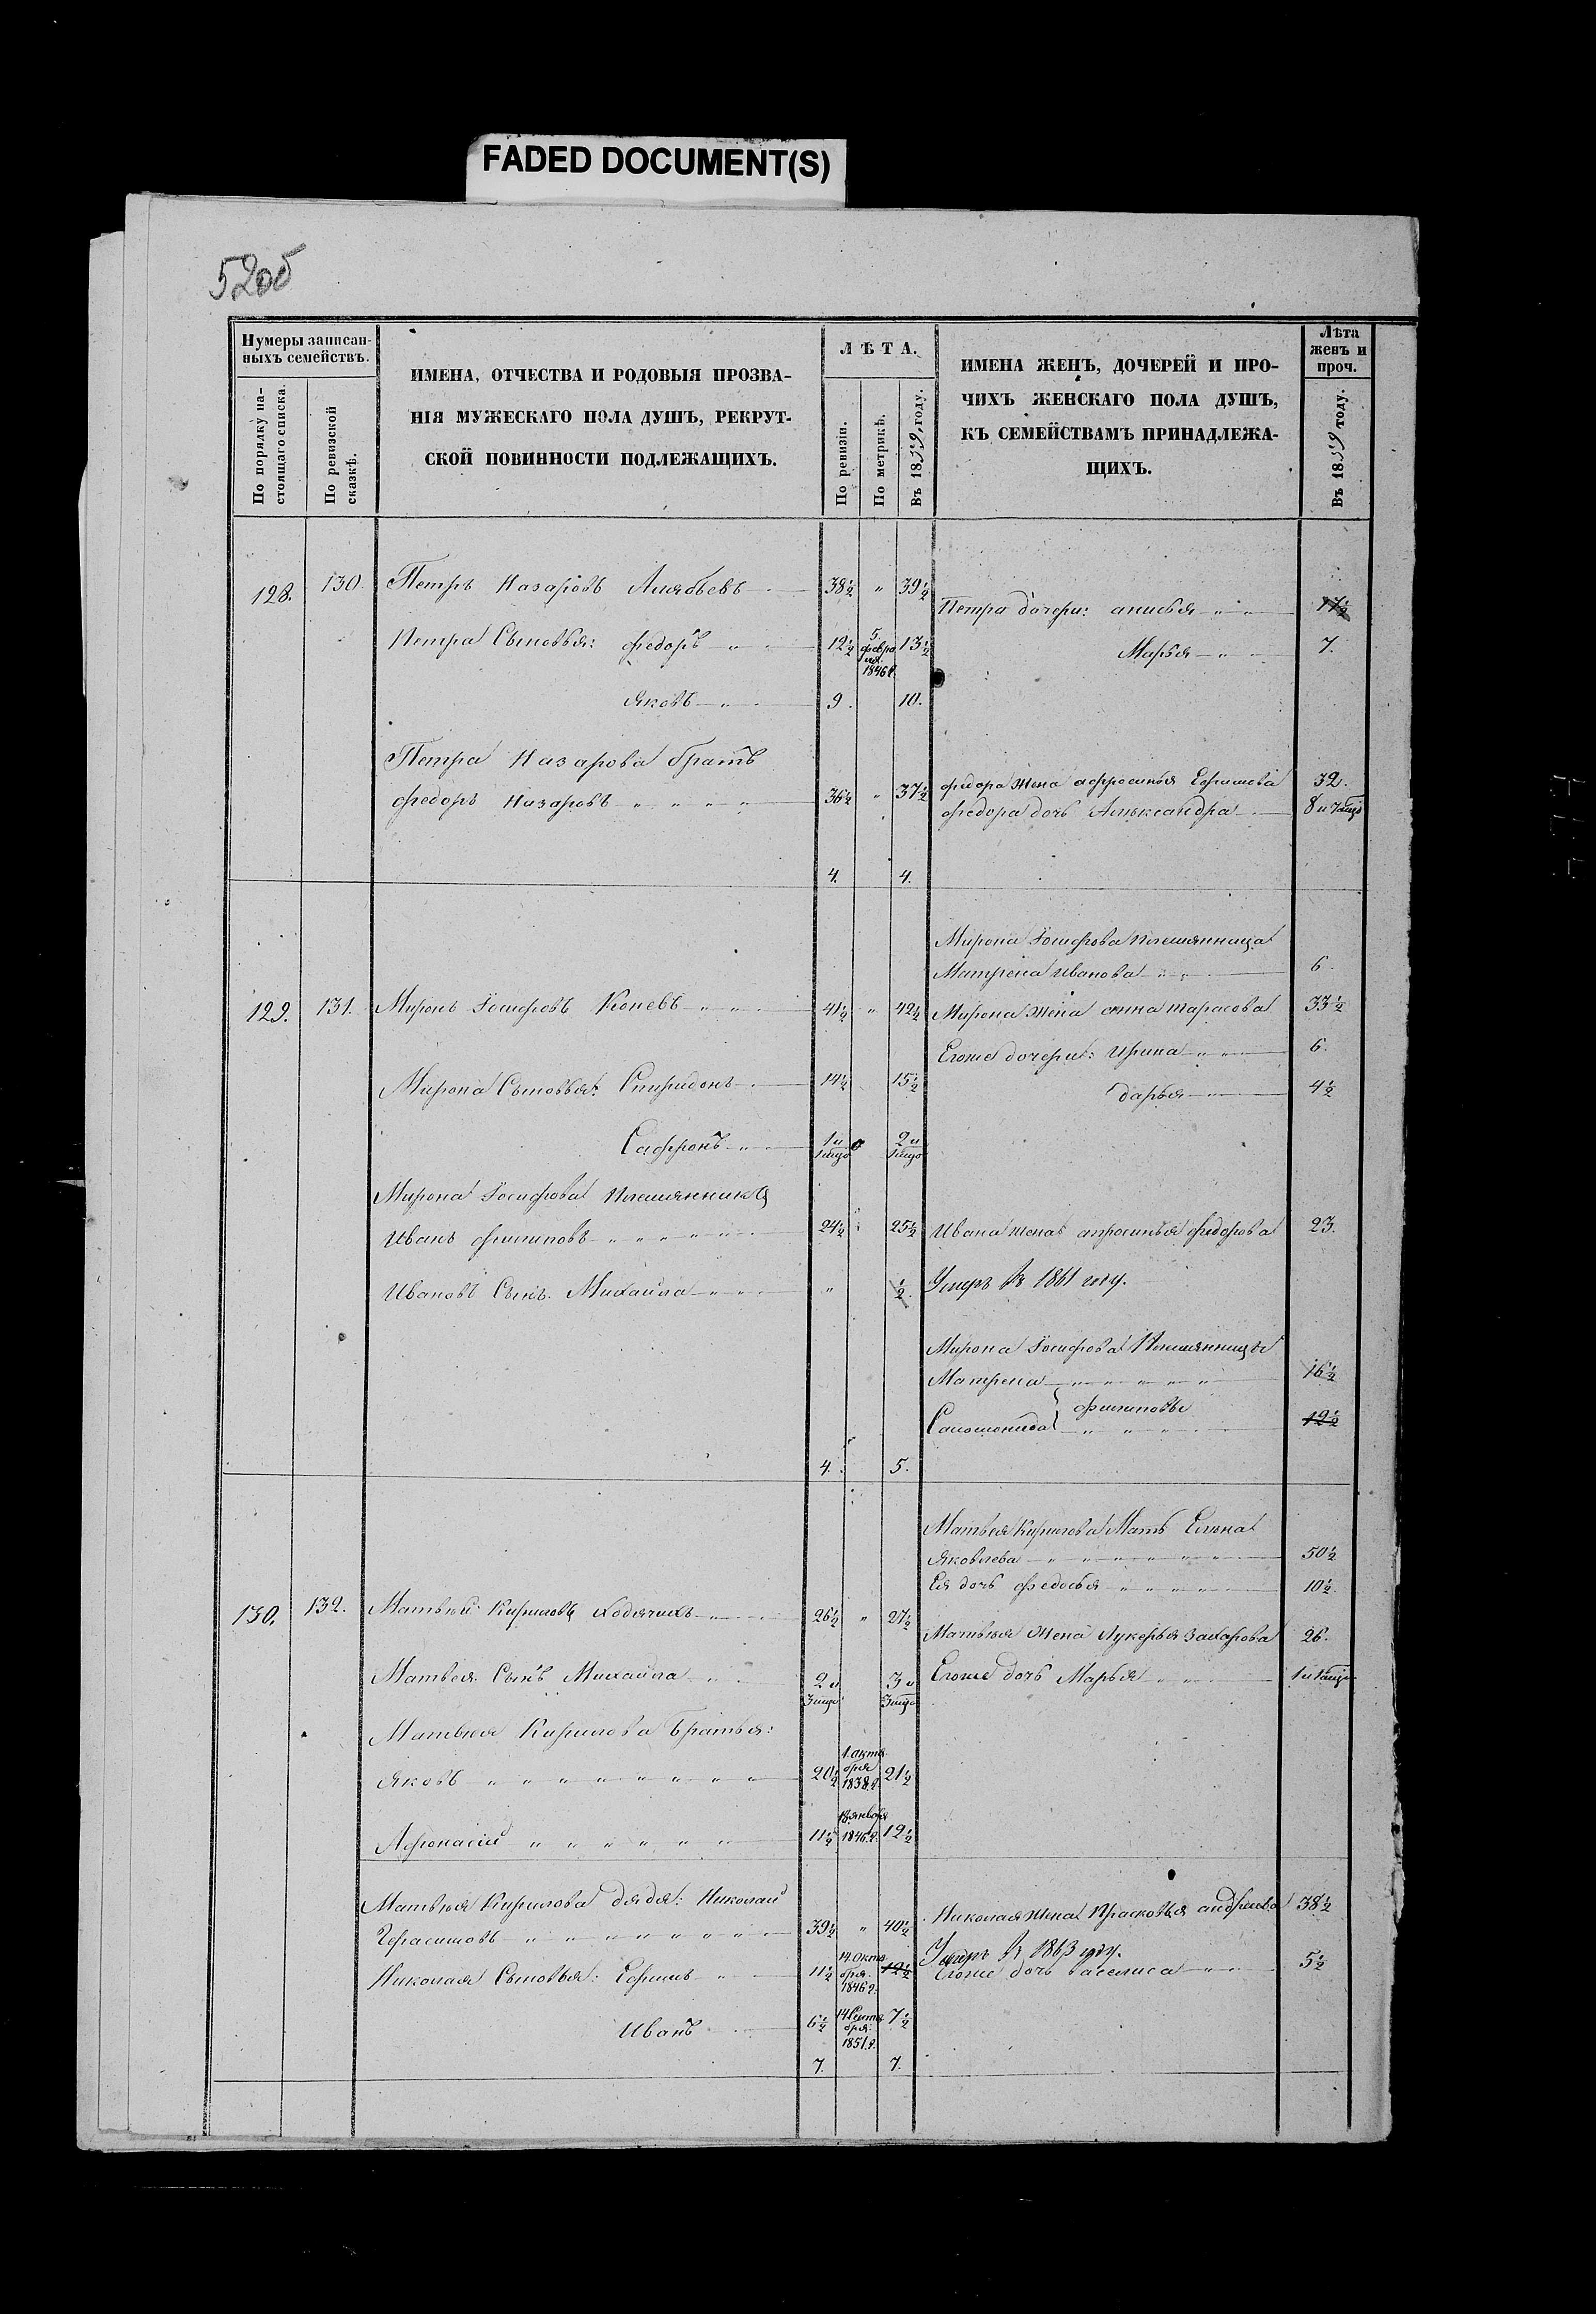 FADED DOCUMENT(S)
52об
Нумеры записан-
ныхъ семействъ.
По порядку на-
стоящаго списка.
По ревизской
сказкѣ.
ИМЕНА, ОТЧЕСТВА И РОДОВЫЯ ПРОЗВА-
НІЯ МУЖЕСКАГО ПОЛА ДУШЪ, РЕКРУТ-
СКОЙ ПОВИННОСТИ ПОДЛЕЖАЩИХЪ.
ЛѢТА.
По ревизіи.
По метрикѣ.
Въ 1859, году.
ИМЕНА ЖЕНЪ, ДОЧЕРЕЙ И ПРО-
ЧИХЪ ЖЕНСКАГО ПОЛА ДУШЪ,
КЪ СЕМЕЙСТВАМЪ ПРИНАДЛЕЖА-
ЩИХЪ.
Лѣта
женъ и
проч.
Въ 1859 году.
128. 130. Петръ Назаровъ Алябьевъ 38½ " 39½
Петра дочери: анисья " " 17½
Петра Сыновья: федоръ " " 12½ 5. февраля 1846 г. 13½
Марья " 7.
яковъ " 9. 10.
Петра Назарова братъ
федоръ Назаровъ " " " " 36½ " 37½ федора жена афросинья Ефимова 32.
федора дочь Александра 8 и 7 мцо
4. 4.
Мирона Іосифова племянница
Матрена иванова " " 6.
129. 131. Миронъ Іосифовъ Коневъ " " 41½ " 42½ Мирона жена анна тарасова 33½
Егоже дочери: ирина " " 6.
Мирона Сыновья: Спиридонъ 14½ 15½
дарья 4½
Сафронъ " 1 и 1 мцо 2 и 1 мцо
Мирона Іосифова племянникъ
Иванъ филиповъ " " " " " 24½ 25½ Ивана жена апросинья федорова 23.
Ивановъ Сынъ Михайла " " " ½. Умеръ въ 1861 году.
Мирона Іосифова племянницы
Матрена " " " " " 16½
филиповы
Саломонида " " " 12½
4. 5.
Матвея Кирилова Мать Елена
Яковлева " " " " " " 50½
Ея дочь федосья " " " " 10½.
130. 132. Матвѣй Кириловъ Ходячихъ 26½ " 27½
Матвѣя жена лукерья захарова 26.
Матвея Сынъ Михайла " " 2 и 3 мцо 3 и 3 мцо Егоже дочь Марья " " 1 и 1 мцо
Матвѣя Кирилова Братья:
яковъ " " " " " " " " 20½ 1. октября 1838 г. 21½
Афонасий " " " " " " 11½ 18 января 1846 г. 12½
Матвѣя Кирилова дядя: Николай
Герасимовъ " " " " " " " 39½ " 40½ Николая жена прасковья андреева 38½
Умеръ въ 1863 году.
Николая Сыновья: Ефимъ " 11½ 14 октября 1846 г. 12½ Егоже дочь василиса " " 5½
Иванъ 6½ 14 Сентября 1851 г. 7½
7. 7.